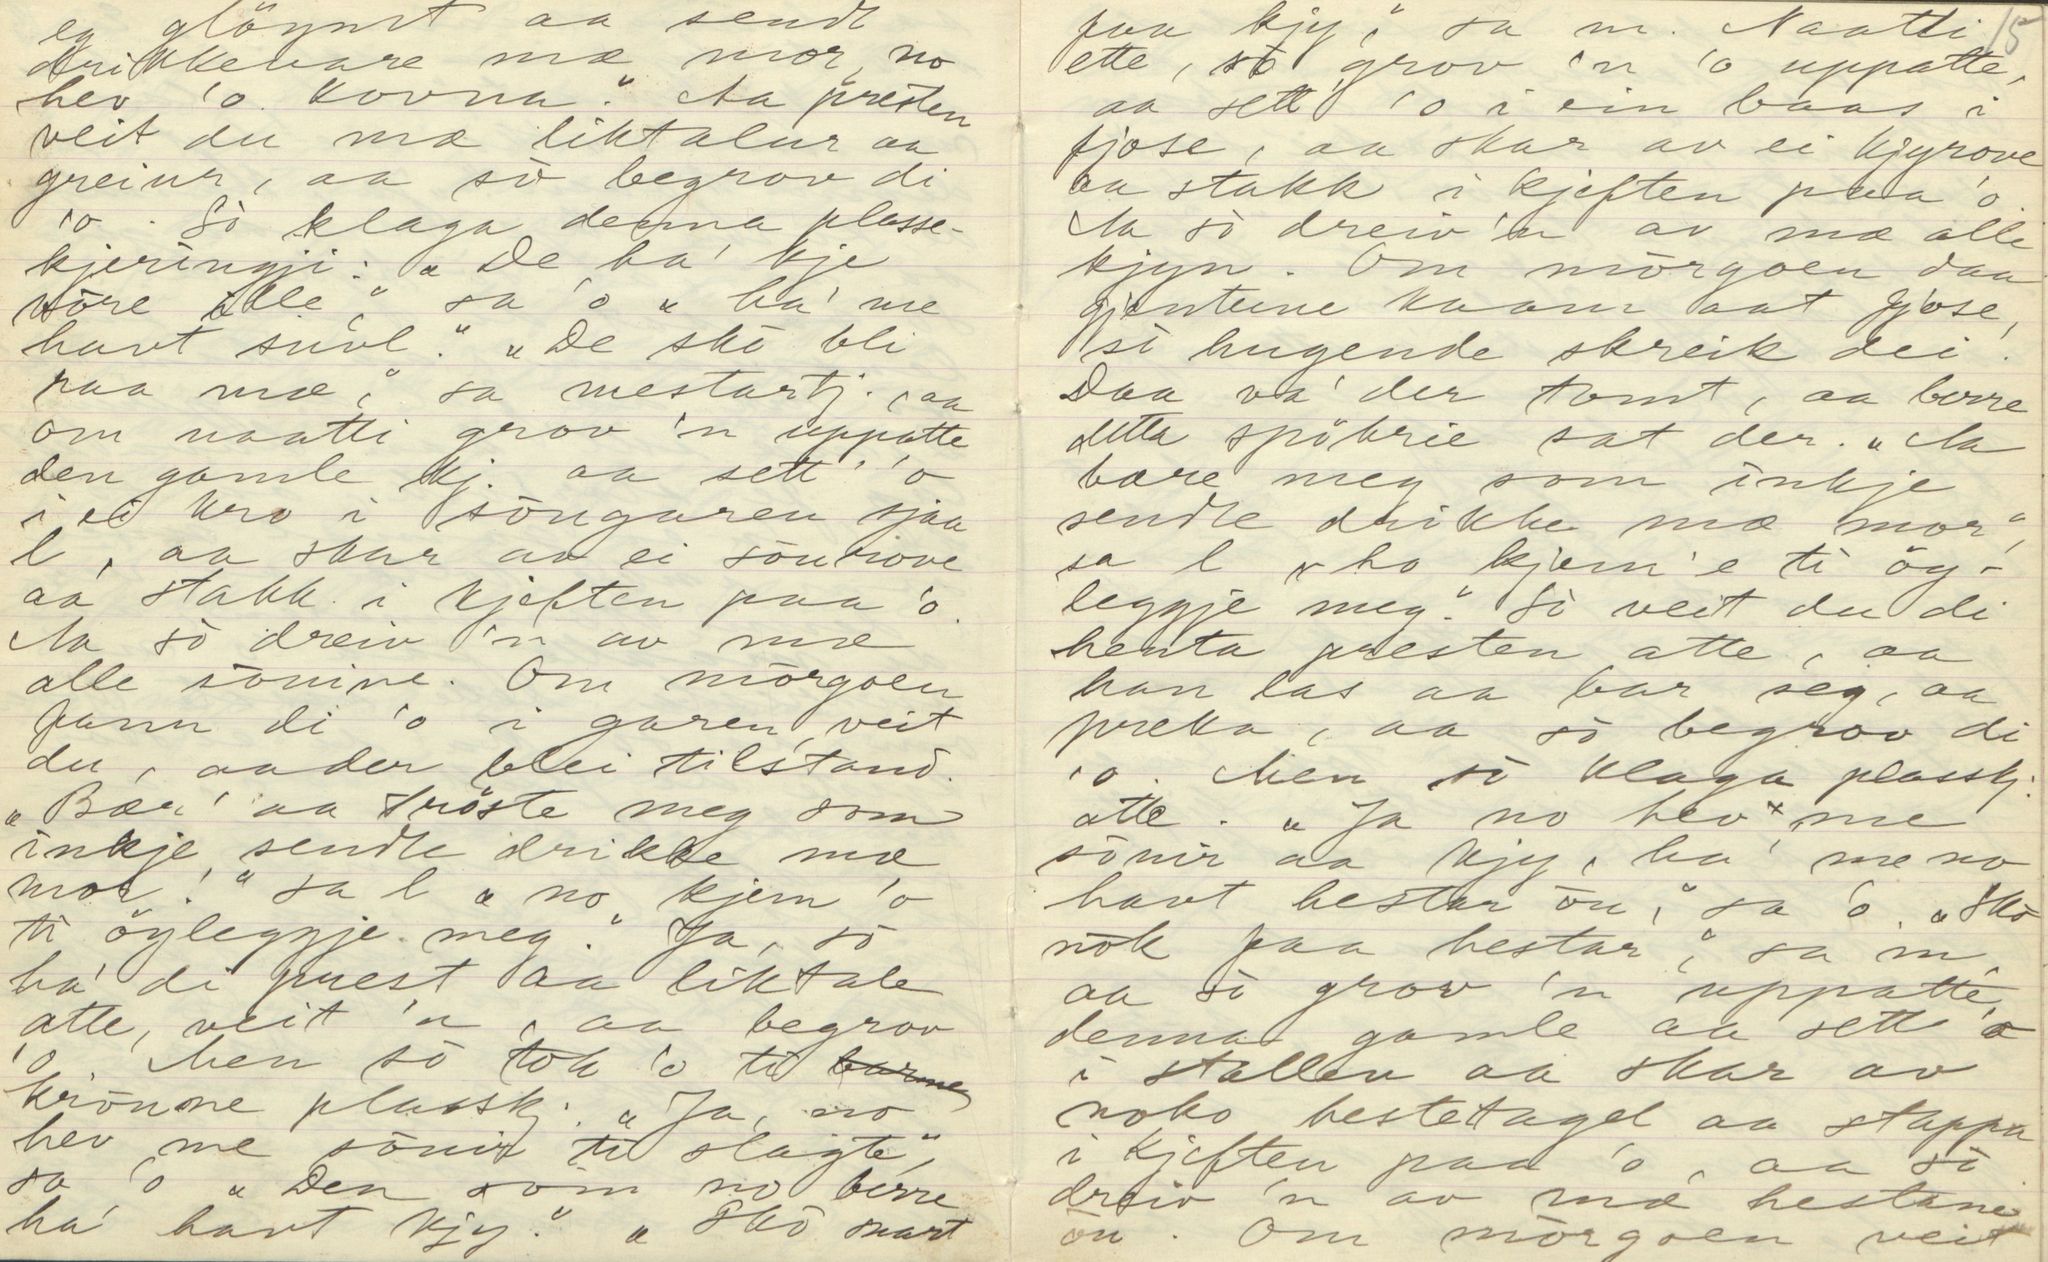 eg glöymt aa sendt
drikkevare mæ mor, no
hev 'o kovna." Aa presten
veit du mæ liktalur aa
greiur, aa sò begrov di
'o. Sò klaga denna plasse-
kjeringji: "De ha' kje
vöre ille," sa 'o "ha' me
havt suvl." "De skò bli
raa mæ," sa mestartj., aa
om naatti grov 'n uppatte
den gamle kj. aa sett' 'o
i ei kro i sòngaren sjaa
l, aa skar av ei sòurove
aa stakk i kjeften paa 'o.
Aa sò dreiv 'n av mæ
alle sòuine. Om mòrgoen
fann di 'o i garen, veit
du, aa der blei tilstand.
"Bær' aa tröste meg som
inkje sendte drikke mæ
mor!" sa l "no kjem 'o
ti öyleggje meg." Ja, sò
ha' di prest aa liktale
atte, veit 'n, aa begrov
'o. Men sò tok 'o ti barme
krònne plasskj. "Ja, no
hev me sòuir ti slagte",
sa 'o "Den som no berre
ha' havt kjy." "Skò snart
15
faa kjy," sa 'n. Naatti
ette, sò grov 'n 'o uppatte,
aa sett' 'o i ein baas i
fjose, aa skar av ei kjyrove
aa stakk i kjeften paa 'o.
Aa sò dreiv 'n av mæ alle
kjyn. Om mòrgoen daa
gjentune kaam aat fjose,
sò hugende skreik dei.
Daa va' der tomt, aa berre
detta spökrie sat der. "Aa
bære meg som inkje
sendte drikke mæ mor",
sa l "ho kjem 'e ti öy-
leggje meg." Sò veit du di
henta presten atte, aa
han las aa bar seg, aa
preka, aa sò begrov di
'o. Men sò klaga plasskj.
atte. "Ja no hev × me
sòuir aa kjy, ha' me no
havt hestar òu," sa 'o. "Skò
nòk faa hestar", sa 'n
aa sò grov 'n uppatte
denna gamle aa sett 'o
i stallen aa skar av
noko hestetagel aa stappa
i kjeften paa 'o, aa sò
dreiv 'n av mæ hestane
òu. Om mòrgoen veit